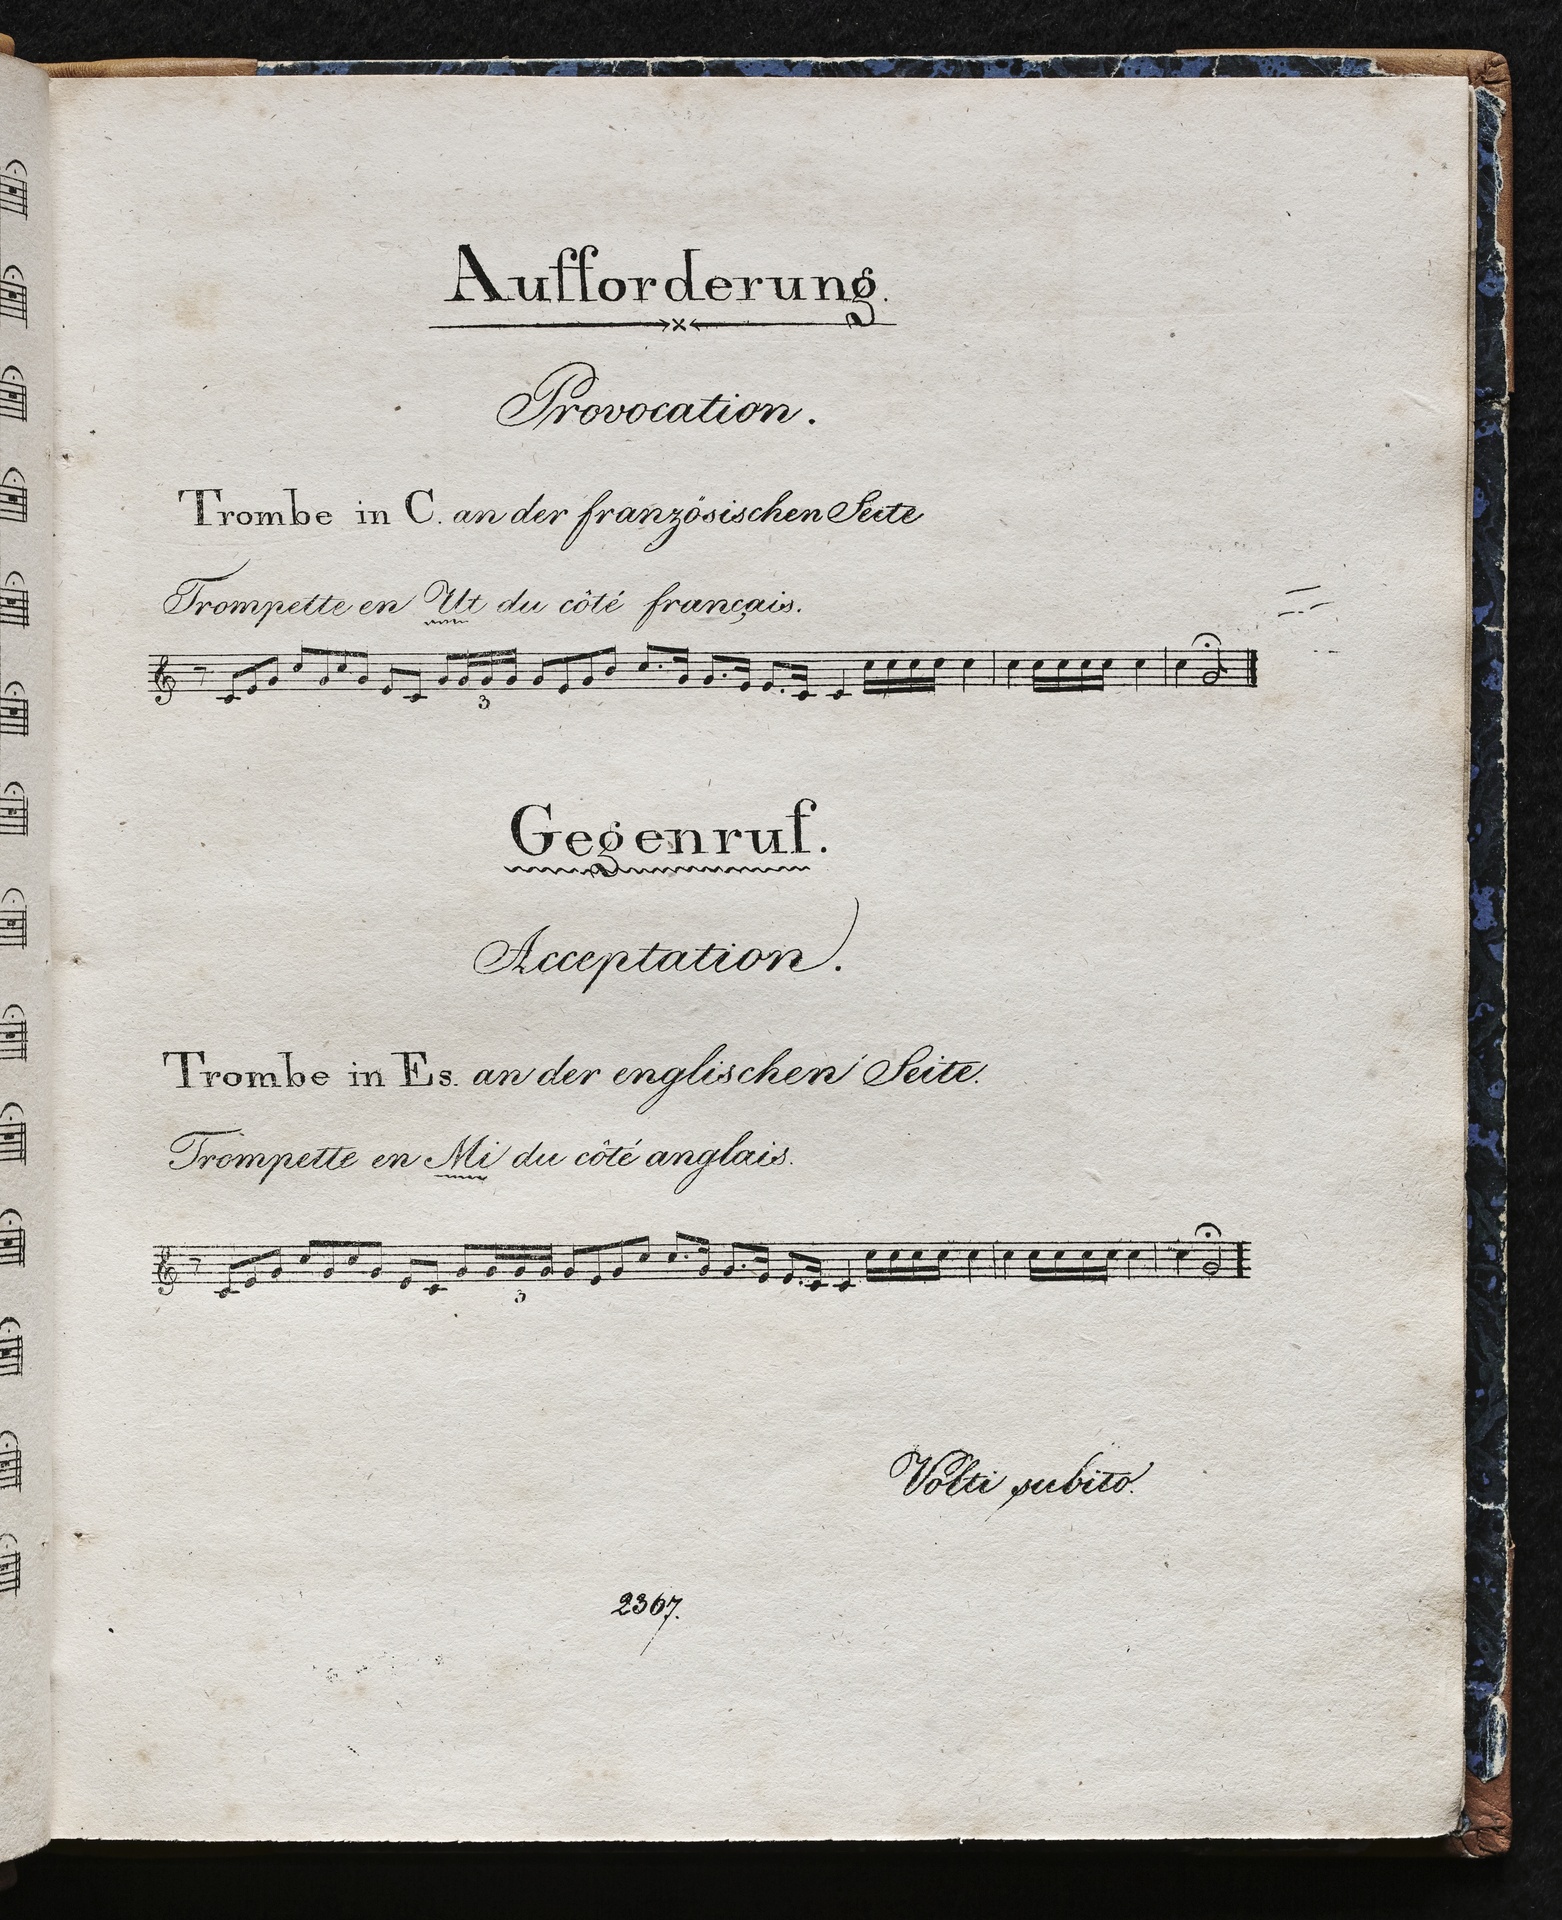 Aufforderung.
Provocation.
Trombe in C. an der französischen Seite
Trompette en Ut du côté français.
3
Gegenruf.
Acceptation.
Trombe in Es. an der englischen Seite.
Trompette en Mi du côté anglais.
3
Volti subito.
2367.